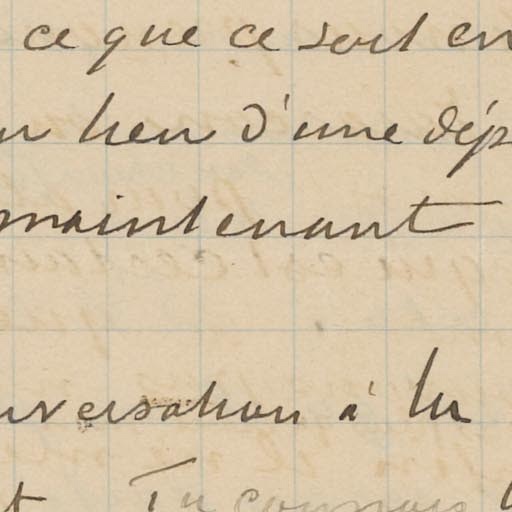 ce que ce soit en
lieu d'une dép
maintenant
nversation à la
t Tu connais